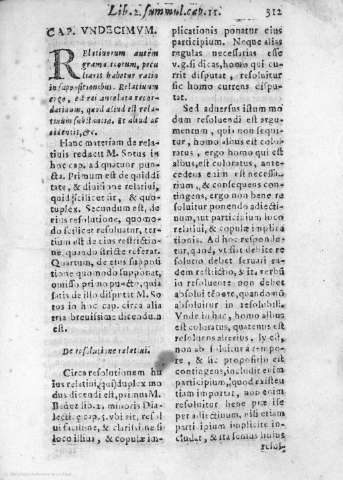 Lib. 2. summul. cap. 11. 312
CAP. VNDECIMVM.
RElatiuorum autem
gramaticorum, pecu
liaris habetur ratio
in suppositionibus. Relatiuum
ergo, est rei antelatæ recor-
datiuum, quod aliud est rela-
tiuum substantiæ, & aliud ac
cidentis, &c.
Hanc materiam de rela-
tiuis redacit M. Sotus in
hoc cap. ad quatuor punc-
ta. Primum est de quiddi
tate, & diuisione relatiui,
quid scilicet sit, & quo-
tuplex. Secundum est, de
eius resolutione, quomo-
do scilicet resoluatur, ter-
tium est de eius restrictio-
ne, quando stricte referat.
Quartum, de eius suppositi
tione quo modo supponat,
omisso primo puncto, quia
satis de illo disputat M. So
tus in hoc cap. circa alia
tria breuiter dicendum
est.
De resolutione relatiui.
Circa resolutionem hu
ius relatiui, qui, duplex mo
dus dicendi est, primus M.
Bañez lib. 2. minoris Dia-
lecticę cap. 5. vbi eit, resol
ui facilime, & clarissime si
loco illius, & copulæ im-
plicationis ponatur eius
participium. Neque alias
regulas necessarias esse
v.g. si dicas, homo qui cur
rit disputat, resoluitur
sic homo currens dispu-
tat.
Sed aduersus istum mo
dum resoluendi est argu-
mentum, quia non sequi-
tur, homo albus est colo
ratus, ergo homo qui est
albus, est coloratus, ante-
cedens enim est necessa-
rium, & consequens contin
gens, ergo non bene re
soluitur ponendo adiecti-
uum, aut participium loco
relatiui, & copulæ implica
tionis. Ad hoc respondetur
quod, vt sit debite re
solutio debet seruari ea-
dem restrictio, & ita verbũ
in resoluente non debet
absolui tẽpore, quando nõ
absoluitur in resolubili.
Vnde in hac, homo albus
est coloratus,
non absoluitur a tempo-
re, & sic propositio est
contingens, includit enim
participium, quod existen
tiam importat, non enim
resoluitur bene præcise
per adiectiuum, nisi etiam
participium implicite in-
cludat, & ita sensus huius
resol-